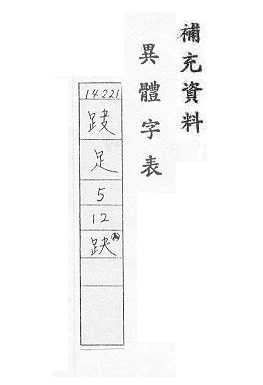 補充資料
異體字表
14221
踜
足
5
12
趹